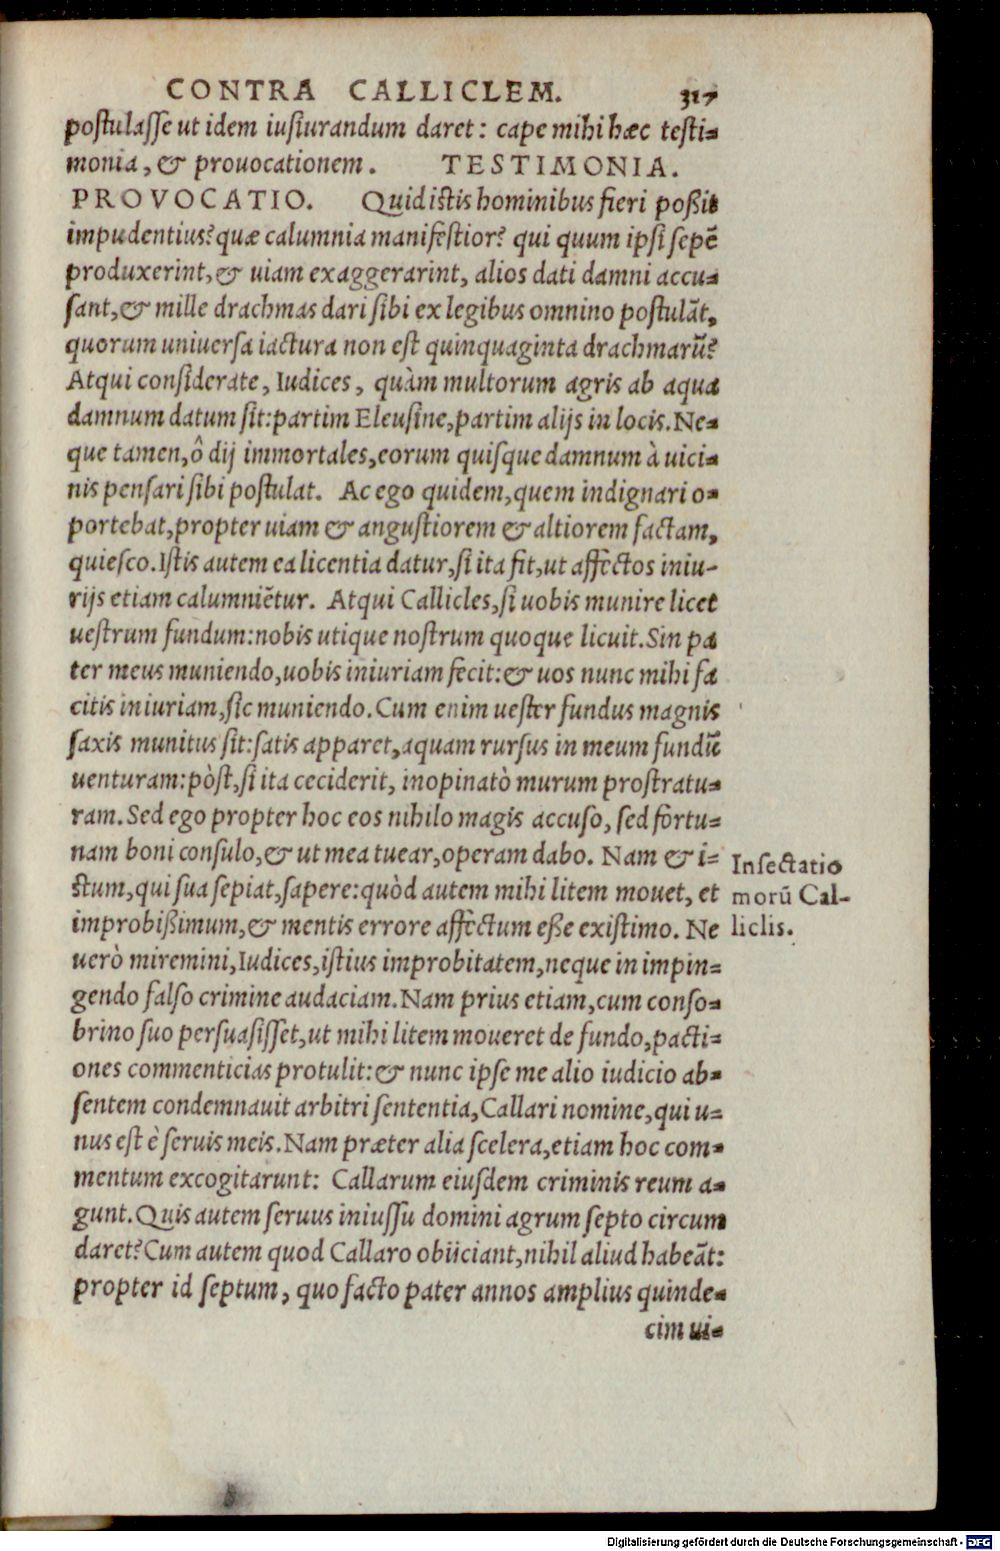 CONTRA CALLICLEM. 317
postulasse ut idem iusiurandum daret: cape mihi hæc testi-
monia, & prouocationem. TESTIMONIA.
PROVOCATIO. Quid istis hominibus fieri poßit
impudentius? quæ calumnia manifestior? qui quum ipsi sepẽ
produxerint, & uiam exaggerarint, alios dati damni accu-
sant, & mille drachmas dari sibi ex legibus omnino postulãt,
quorum uniuersa iactura non est quinquaginta drachmarũ?
Atqui considerate, Iudices, quàm multorum agris ab aqua
damnum datum sit: partim Eleusine, partim alijs in locis. Ne-
que tamen, ô dij immortales, eorum quisque damnum à uici-
nis pensari sibi postulat. Ac ego quidem, quem indignari o-
portebat, propter uiam & angustiorem & altiorem factam,
quiesco. Istis autem ea licentia datur, si ita fit, ut affectos iniu-
rijs etiam calumniẽtur. Atqui Callicles, si uobis munire licet
uestrum fundum: nobis utique nostrum quoque licuit. Sin pa
ter meus muniendo, uobis iniuriam fecit: & uos nunc mihi fa
citis iniuriam, sic muniendo. Cum enim uester fundus magnis
saxis munitus sit: satis apparet, aquam rursus in meum fundũ
uenturam: pòst, si ita ceciderit, inopinatò murum prostratu-
ram. Sed ego propter hoc eos nihilo magis accuso, sed fortu-
nam boni consulo, & ut mea tuear, operam dabo. Nam & i-
stum, qui sua sepiat, sapere: quòd autem mihi litem mouet, et
improbißimum, & mentis errore affectum eße existimo. Ne
uerò miremini, Iudices, istius improbitatem, neque in impin-
gendo falso crimine audaciam. Nam prius etiam, cum conso-
brino suo persuasisset, ut mihi litem moueret de fundo, pacti-
ones commenticias protulit: & nunc ipse me alio iudicio ab-
sentem condemnauit arbitri sententia, Callari nomine, qui u-
nus est è seruis meis. Nam præter alia scelera, etiam hoc com-
mentum excogitarunt: Callarum eiusdem criminis reum a-
gunt. Quis autem seruus iniussu domini agrum septo circum
daret? Cum autem quod Callaro obijciant, nihil aliud habeãt:
propter id septum, quo facto pater annos amplius quinde-
cim ui-
Insectatio
morũ Cal-
liclis.
Digitalisierung gefördert durch die Deutsche Forschungsgemeinschaft - DFG